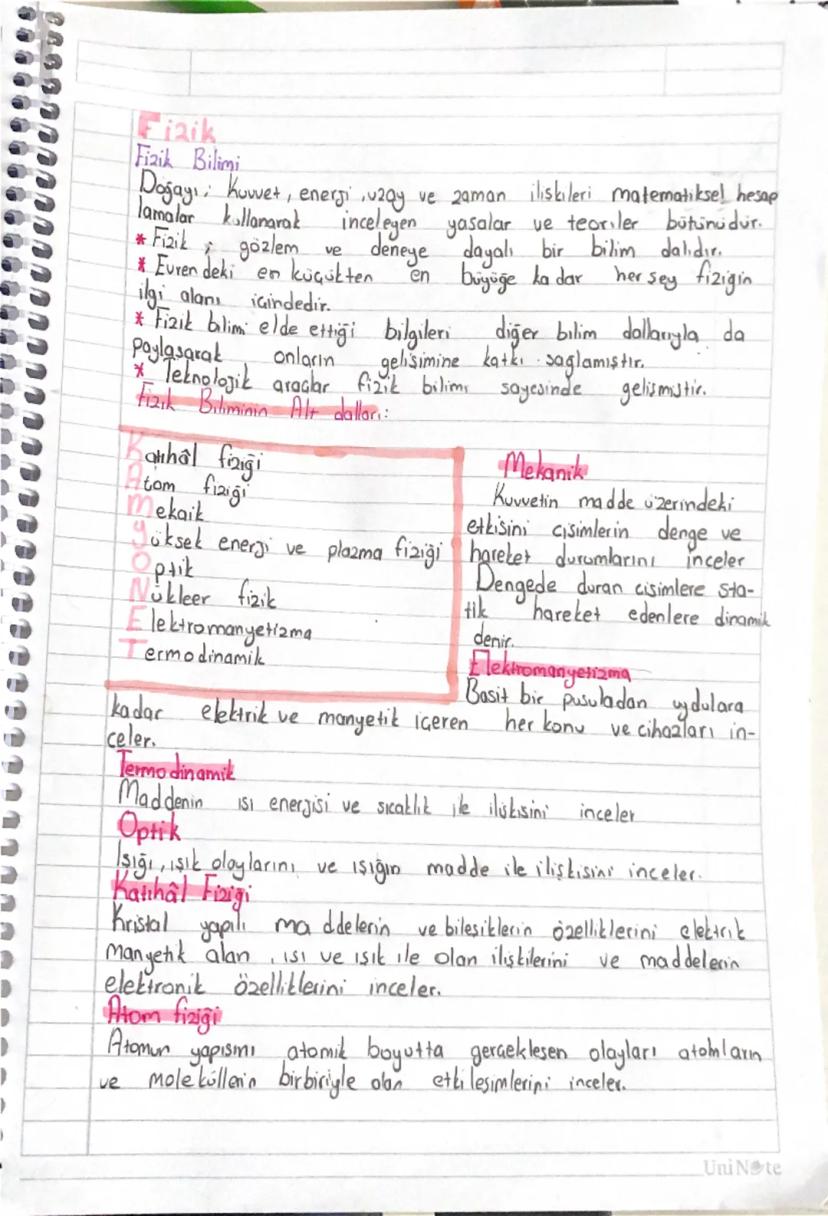 Fizik
Fizik Bilimi
Doğayı; kuvvet, enerji, uzay ve zaman ilişkileri matematiksel hesap
lamalar kullanarak inceleyen yasalar ve teoriler bütünüdür.
* Fizik ; gözlem ve deneye dayalı bir bilim dalıdır.
* Evrendeki en küçükten en büyüğe kadar her şey fiziğin
ilgi alanı içindedir.
* Fizik bilimi elde ettiği bilgileri diğer bilim dallarıyla da
paylaşarak onların gelişimine katkı sağlamıştır.
* Teknolojik araçlar fizik bilimi sayesinde gelişmiştir.
Fizik Biliminin Alt dalları:
Katıhâl fiziği
Atom fiziği
Mekaik
Yüksek enerji ve plazma fiziği
Optik
Nükleer fizik
Elektromanyetizma
Termodinamik
Mekanik
Kuvvetin madde üzerindeki
etkisini cisimlerin denge ve
hareket durumlarını inceler
Dengede duran cisimlere sta-
tik hareket edenlere dinamik
denir.
Elektromanyetizma
Basit bir pusuladan uydulara
kadar elektrik ve manyetik içeren her konu ve cihazları in-
celer.
Termodinamik
Maddenin ısı enerjisi ve sıcaklık ile ilişkisini inceler
Optik
Işığı, ışık olaylarını ve ışığın madde ile ilişkisini inceler.
Katıhâl Fiziği
Kristal yapılı maddelerin ve bileşiklerin özelliklerini elektrik
manyetik alan , ısı ve ışık ile olan ilişkilerini ve maddelerin
elektronik özelliklerini inceler.
Atom fiziği
Atomun yapısını atomik boyutta gerçekleşen olayları atomların
ve moleküllerin birbiriyle olan etkileşimlerini inceler.
UniNote